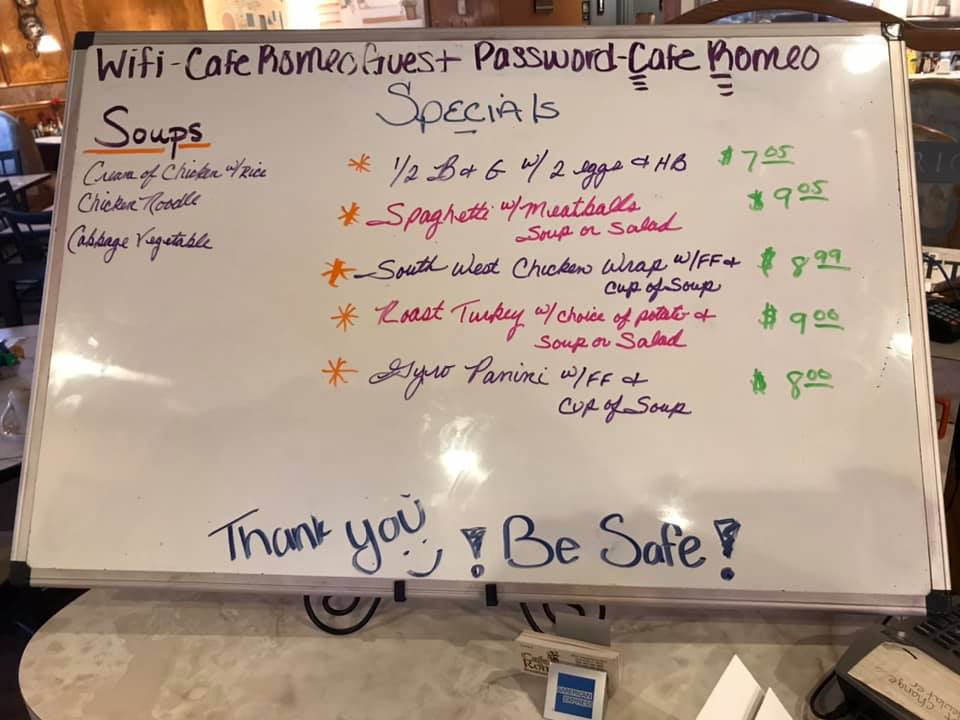 Wifi - Cafe Romeo Guest Password - Cafe Romeo
Specials
Soups
Cream of Chicken w/ Rice
Chicken Noodle
Cabbage Vegetable
* 1/2 B & G w/ 2 eggs & HB $7.05
* Spaghetti w/ Meatballs $9.05
Soup or Salad
* South West Chicken Wrap w/ FF & $8.99
Cup of Soup
* Roast Turkey w/ choice of potato & $9.00
Soup or Salad
* Gyro Panini w/ FF & $8.00
Cup of Soup
Thank you! Be Safe!
Cafe
Rom
AMERICAN
EXPRESS
change